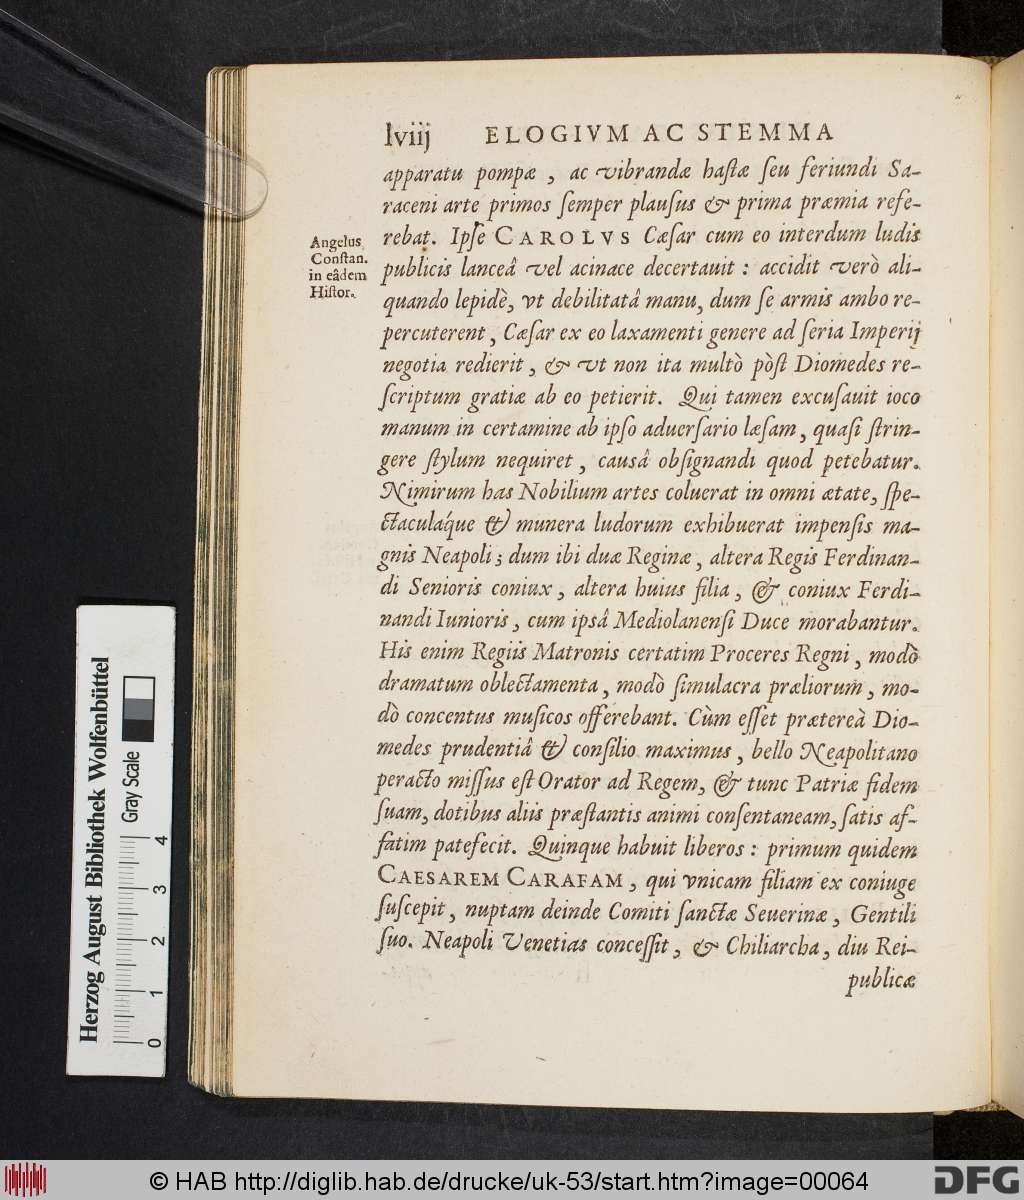 lviij ELOGIVM AC STEMMA
apparatu pompæ, ac vibrandæ hastæ seu feriundi Sa-
raceni arte primos semper plausus & prima præmia refe-
rebat. Ipse CAROLVS Cæsar cum eo interdum ludis
publicis lanceâ vel acinace decertauit : accidit verò ali-
quando lepidè, vt debilitatâ manu, dum se armis ambo re-
percuterent, Cæsar ex eo laxamenti genere ad seria Imperij
negotia redierit, & vt non ita multò pòst Diomedes re-
scriptum gratiæ ab eo petierit. Qui tamen excusauit ioco
manum in certamine ab ipso aduersario læsam, quasi strin-
gere stylum nequiret, causâ obsignandi quod petebatur.
Nimirum has Nobilium artes coluerat in omni ætate, spe-
ctaculáque & munera ludorum exhibuerat impensis ma-
gnis Neapoli; dum ibi duæ Reginæ, altera Regis Ferdinan-
di Senioris coniux, altera huius filia, & coniux Ferdi-
nandi Iunioris, cum ipsâ Mediolanensi Duce morabantur.
His enim Regiis Matronis certatim Proceres Regni, modò
dramatum oblectamenta, modò simulacra præliorum, mo-
dò concentus musicos offerebant. Cùm esset prætereà Dio-
medes prudentiâ & consilio maximus, bello Neapolitano
peracto missus est Orator ad Regem, & tunc Patriæ fidem
suam, dotibus aliis præstantis animi consentaneam, satis af-
fatim patefecit. Quinque habuit liberos : primum quidem
CAESAREM CARAFAM, qui vnicam filiam ex coniuge
suscepit, nuptam deinde Comiti sanctæ Seuerinæ, Gentili
suo. Neapoli Venetias concessit, & Chiliarcha, diu Rei-
publicæ
Angelus
Constan.
in eâdem
Histor.
Herzog August Bibliothek Wolfenbüttel
Gray Scale
0 1 2 3 4
© HAB http://diglib.hab.de/drucke/uk-53/start.htm?image=00064
DFG